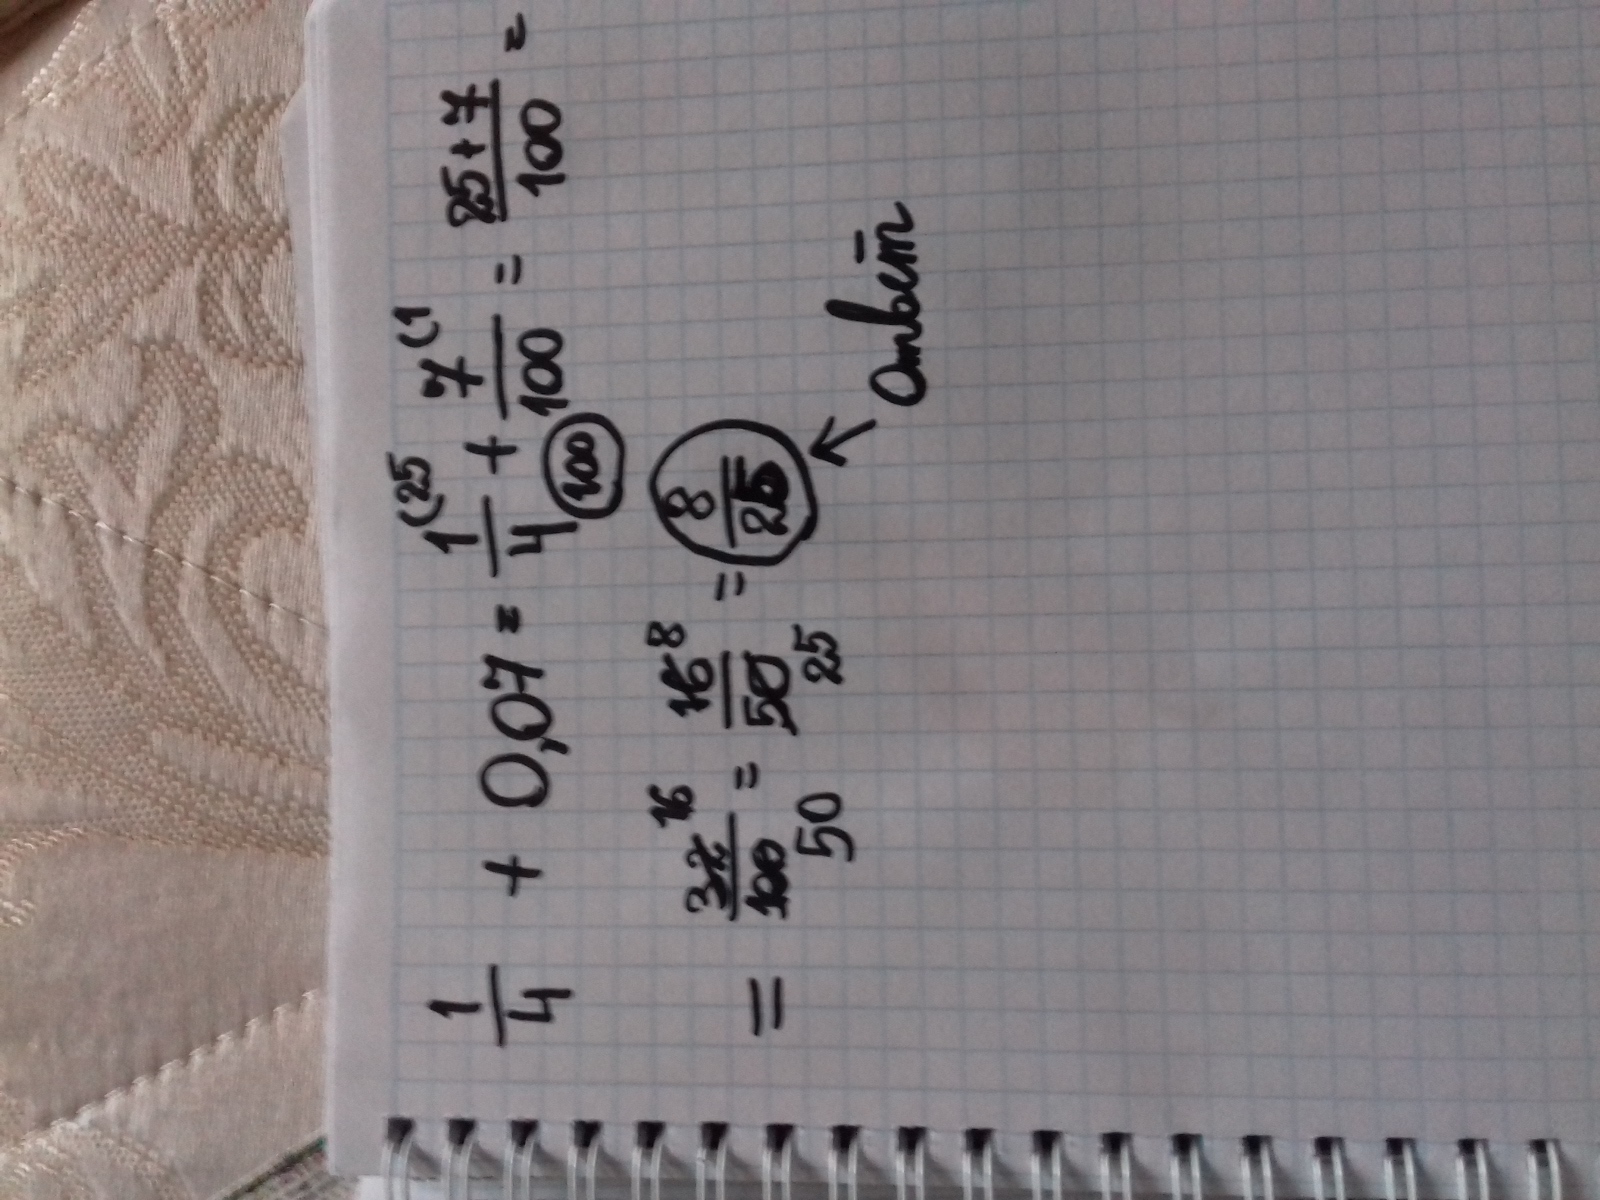 1/4 + 0,07 = 1(25/4 + 7(1/100 = 25+7/100 =
100
= 32 16/100 50 = 16 8/50 25 = 8/25
Ответ